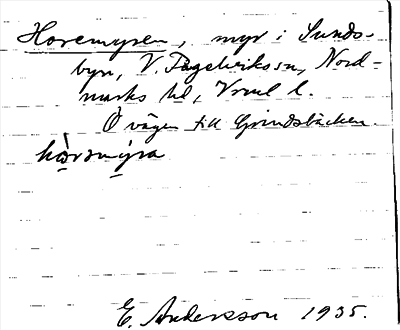 Horemyren, myr i Sunds-
byn, V. Fågelviks sn, Nord-
marks hd, Vrml l.
Ö vägen till Grindsbäcken.
hòrəmýra
E. Andersson 1935.